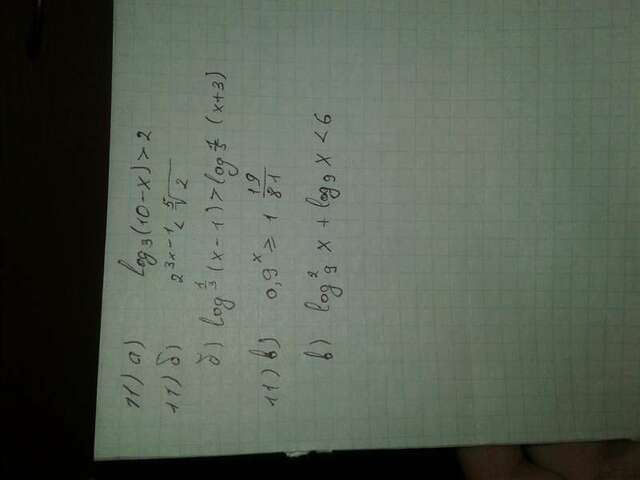 11) а) log₃(10-x)>2
11) б) 2^{3x-1} < ⁵√2
б) log^{1/3} (x-1) > log_{1/3} (x+3)
11) в) 0,9^x ≥ 1 19/81
в) log²₉ x + log₉ x < 6